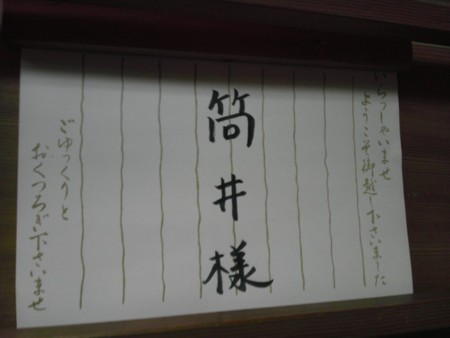 いらっしゃいませ
ようこそ御越し下さいました
筒井様
ごゆっくりと
おくつろぎ下さいませ